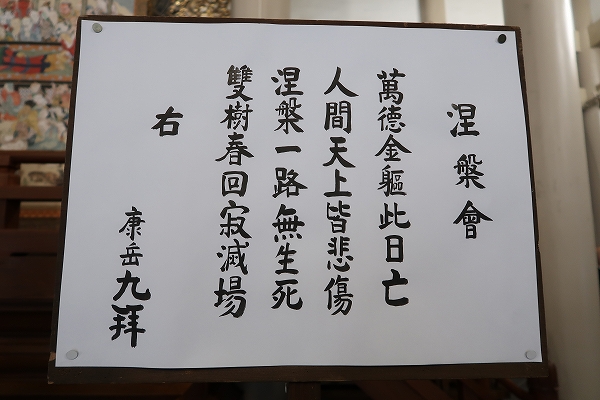 涅槃會
萬德金軀此日亡
人間天上皆悲傷
涅槃一路無生死
雙樹春回寂滅場
右
康岳九拜